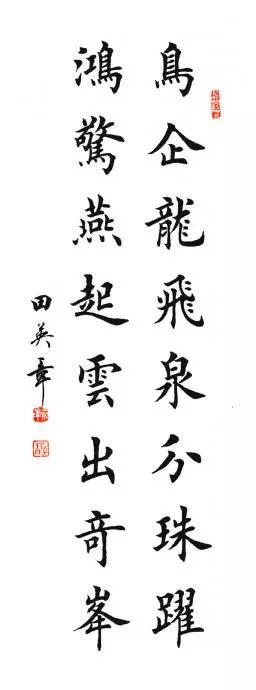 鳥企龍飛泉分珠躍
鴻驚燕起雲出奇峯
田英章